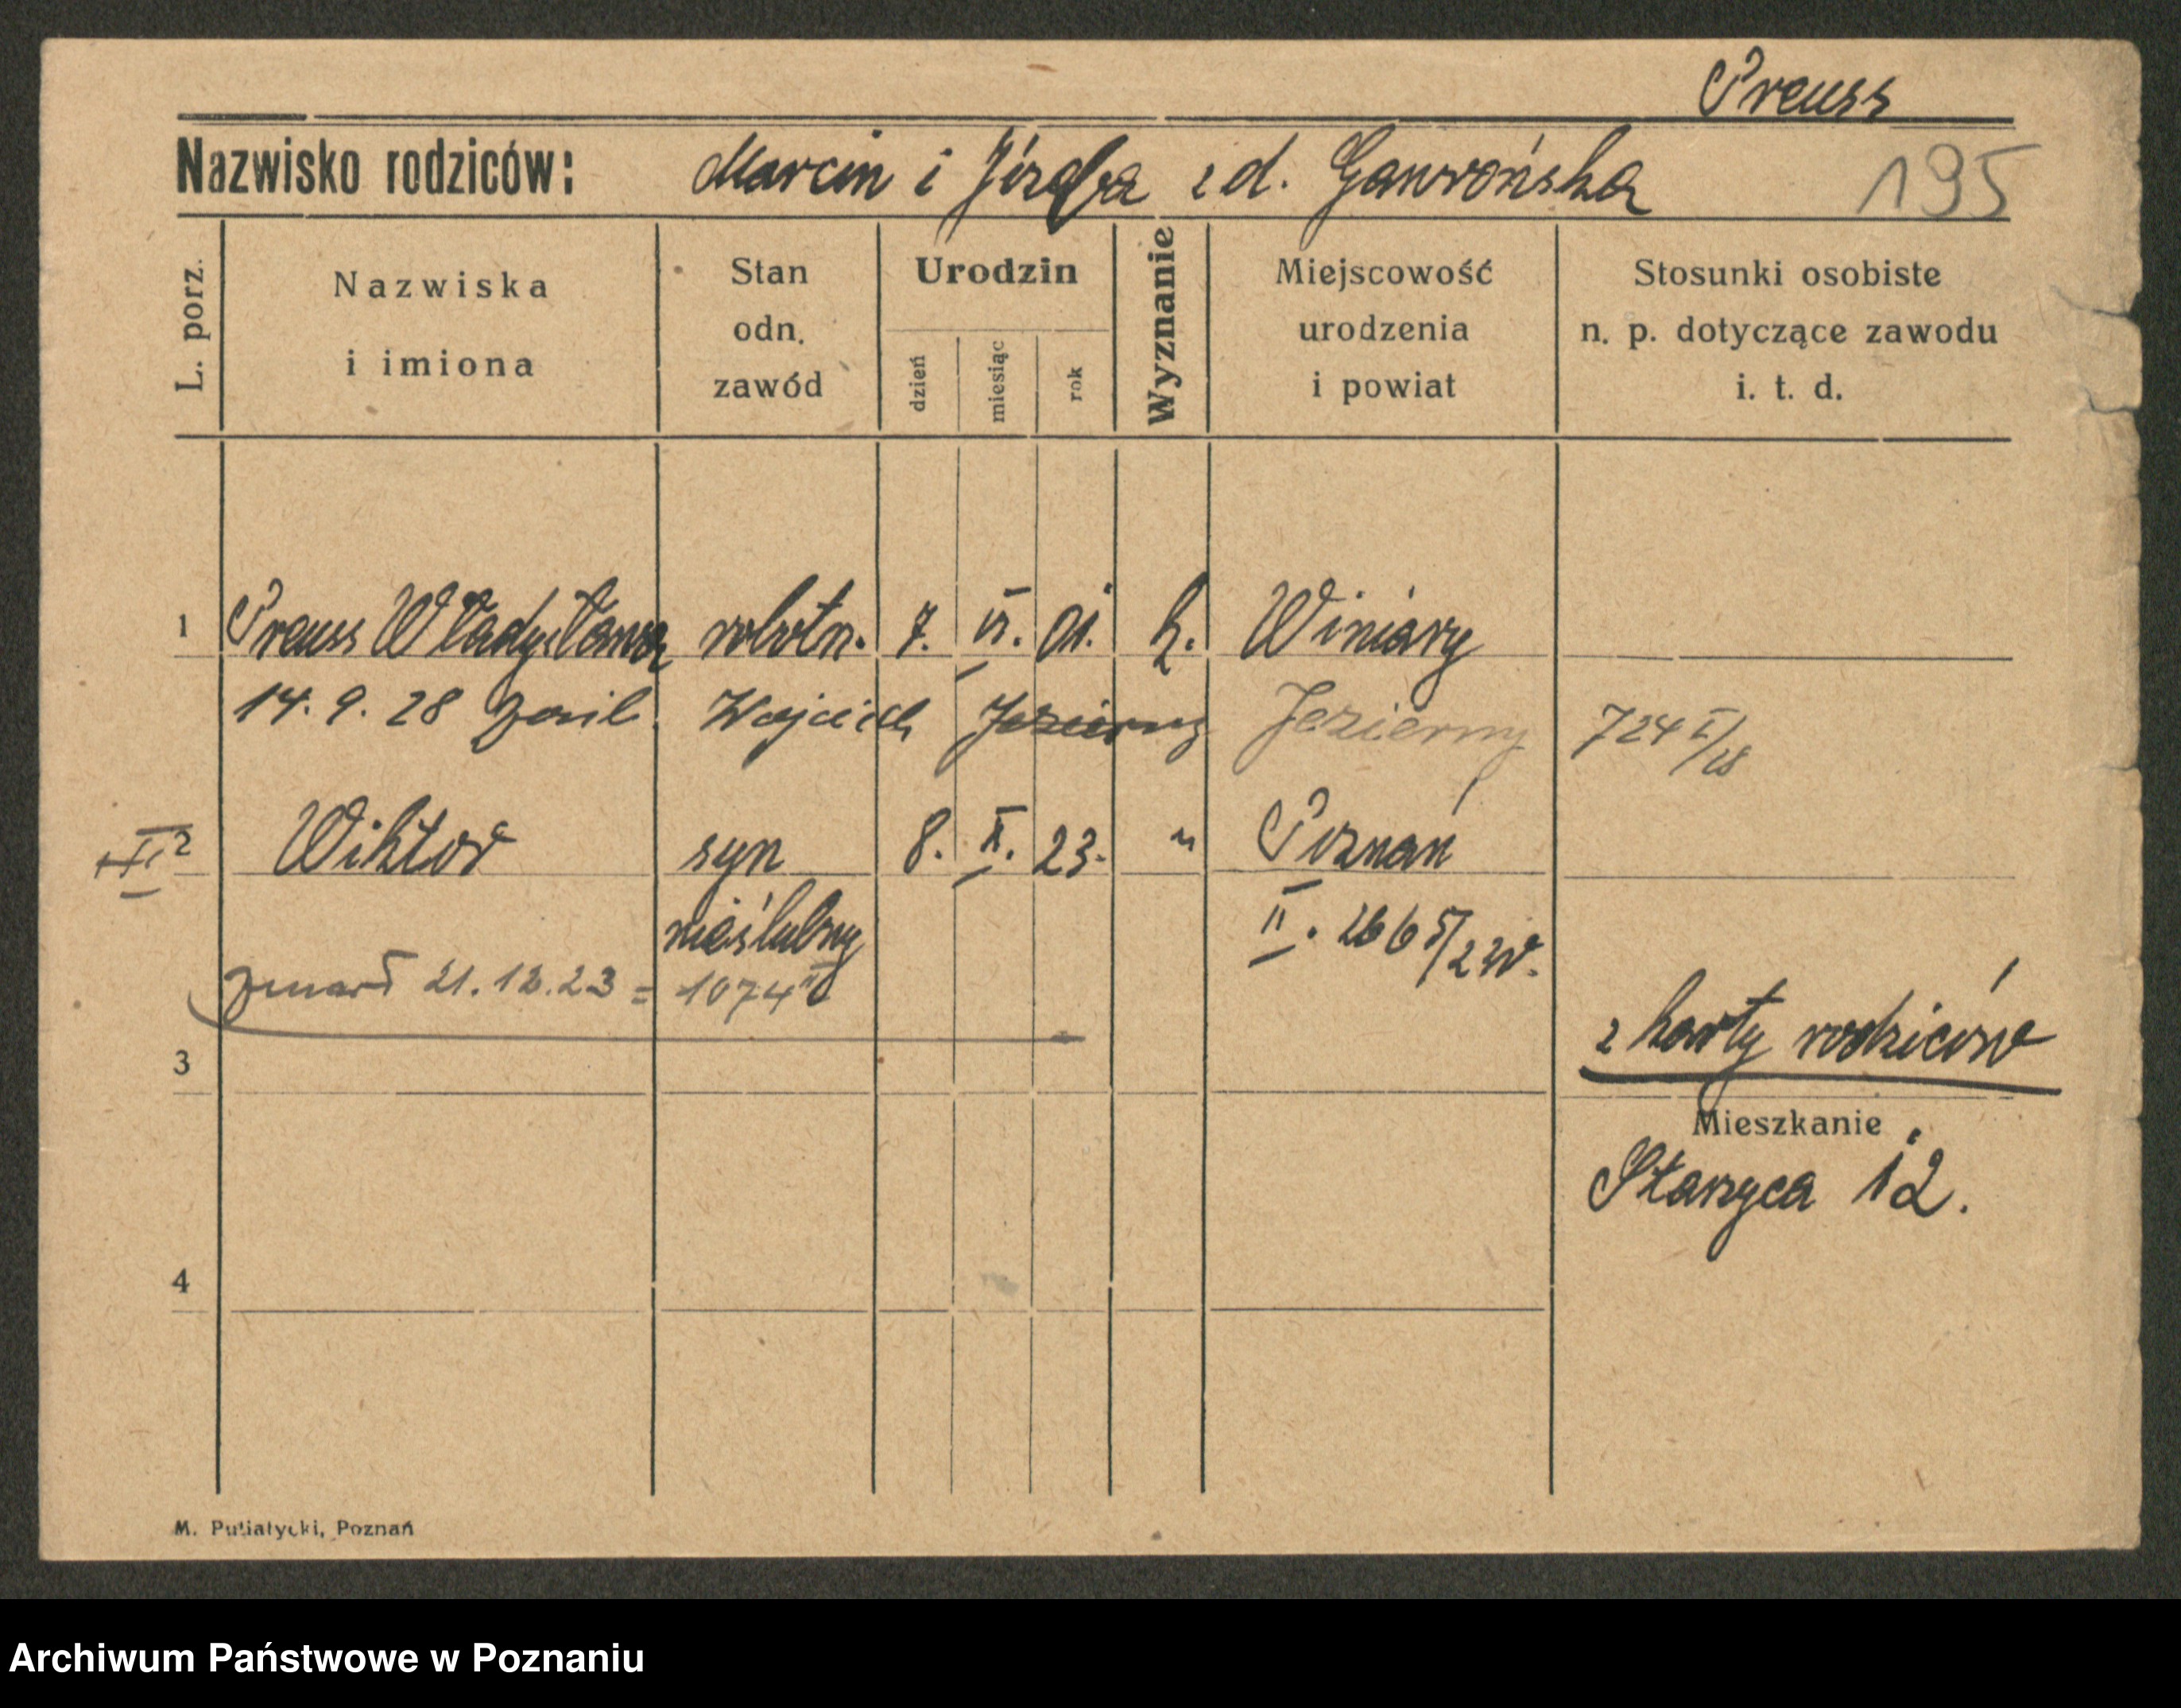 Preuss
Nazwisko rodziców: Marcin i Józefa z d. Gawrońska 195
L. porz.
Nazwiska i imiona
Stan odn. zawód
Urodzin
dzień miesiąc rok
Wyznanie
Miejscowość urodzenia i powiat
Stosunki osobiste n. p. dotyczące zawodu i. t. d.
1 Preuss Władysława robotn. 7. VI. 01. k. Winiary
14. 9. 28 Wojciech Jezierny Jezierny 724 I/28
2 Wiktor syn 8. X. 23. " Poznań
nieślubny II. 2665/23
zmarł 21.12.23 = 1074 II
z karty rodziców
3
Mieszkanie
Starzyca 12.
4
M. Putiatycki, Poznań
Archiwum Państwowe w Poznaniu